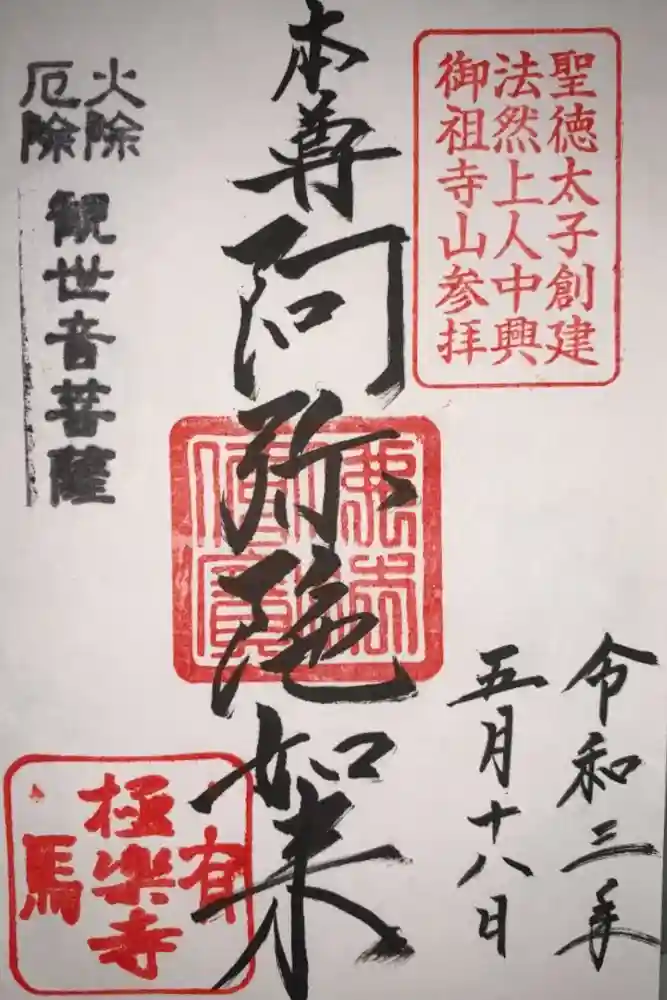 聖徳太子創建
法然上人中興
御祖寺山参拝
令和三年
五月十八日
本尊阿弥陀如来
火除
厄除
観世音菩薩
有
極楽寺
馬